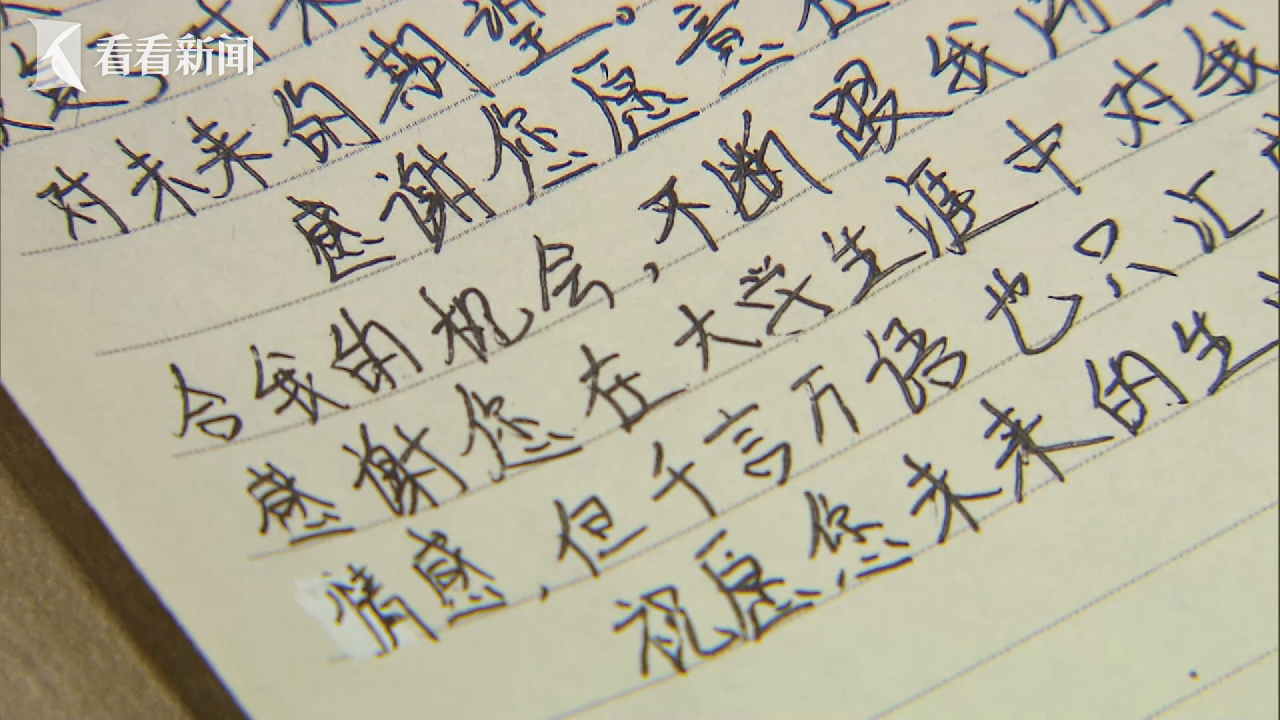 看看新闻
对未来的期望。
感谢您愿意在
合我的机会,不断
感谢您在大学生涯中对我
情感,但千言万语也只汇
祝愿您未来的生